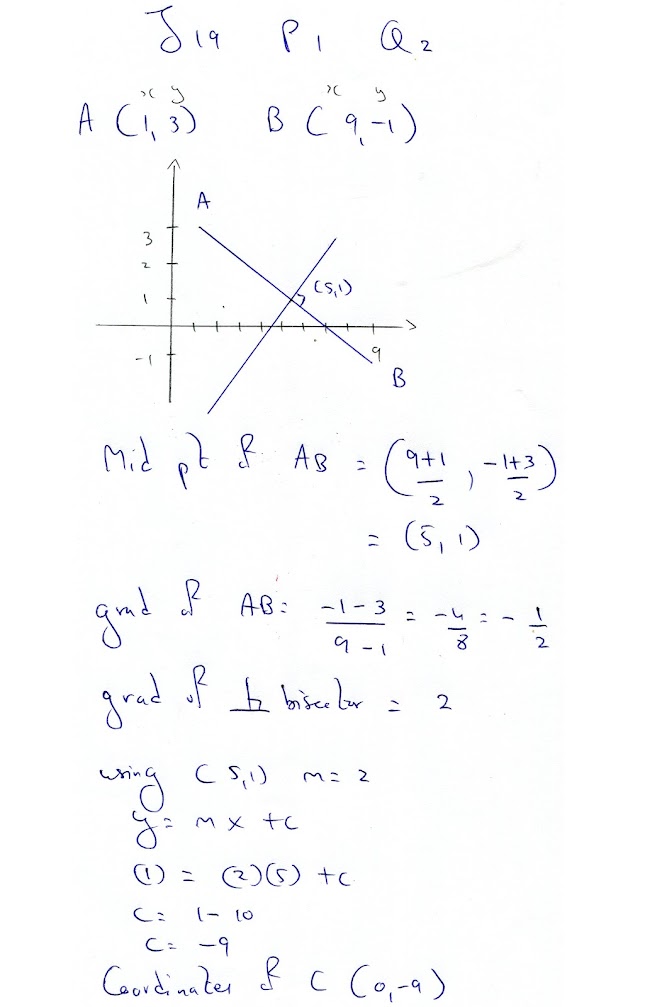 J19 P1 Q2
x y x y
A (1, 3) B (9, -1)
A
3
2
1
(5,1)
-1
9
B
Mid pt of AB = (9+1/2, -1+3/2)
= (5, 1)
grad of AB: -1-3/9-1 = -4/8 = -1/2
grad of ⊥ bisector = 2
using (5,1) m = 2
y = mx + c
(1) = (2)(5) + c
c = 1 - 10
c = -9
Coordinates of C (0, -9)